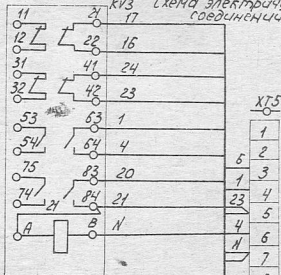 KV3 Схема электрич
соединений
11 21 17
12 22 16
31 41 24
32 42 23
XT5
53 63 1
54 64 4
75 83 20
74 21 84 21
A B N
6
1
23
4
N
1
2
3
4
5
6
7